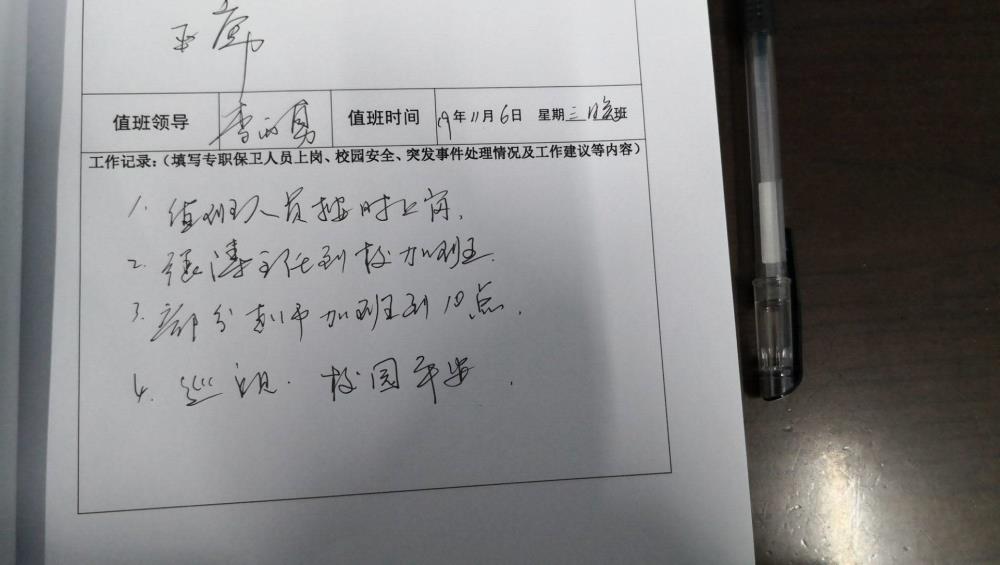 正常
值班领导 李 勇 值班时间 19年11月6日 星期三晚班
工作记录:(填写专职保卫人员上岗、校园安全、突发事件处理情况及工作建议等内容)
1. 值班人员按时上岗.
2. 张涛主任到校加班.
3. 部分教师加班到10点.
4. 巡视. 校园平安.